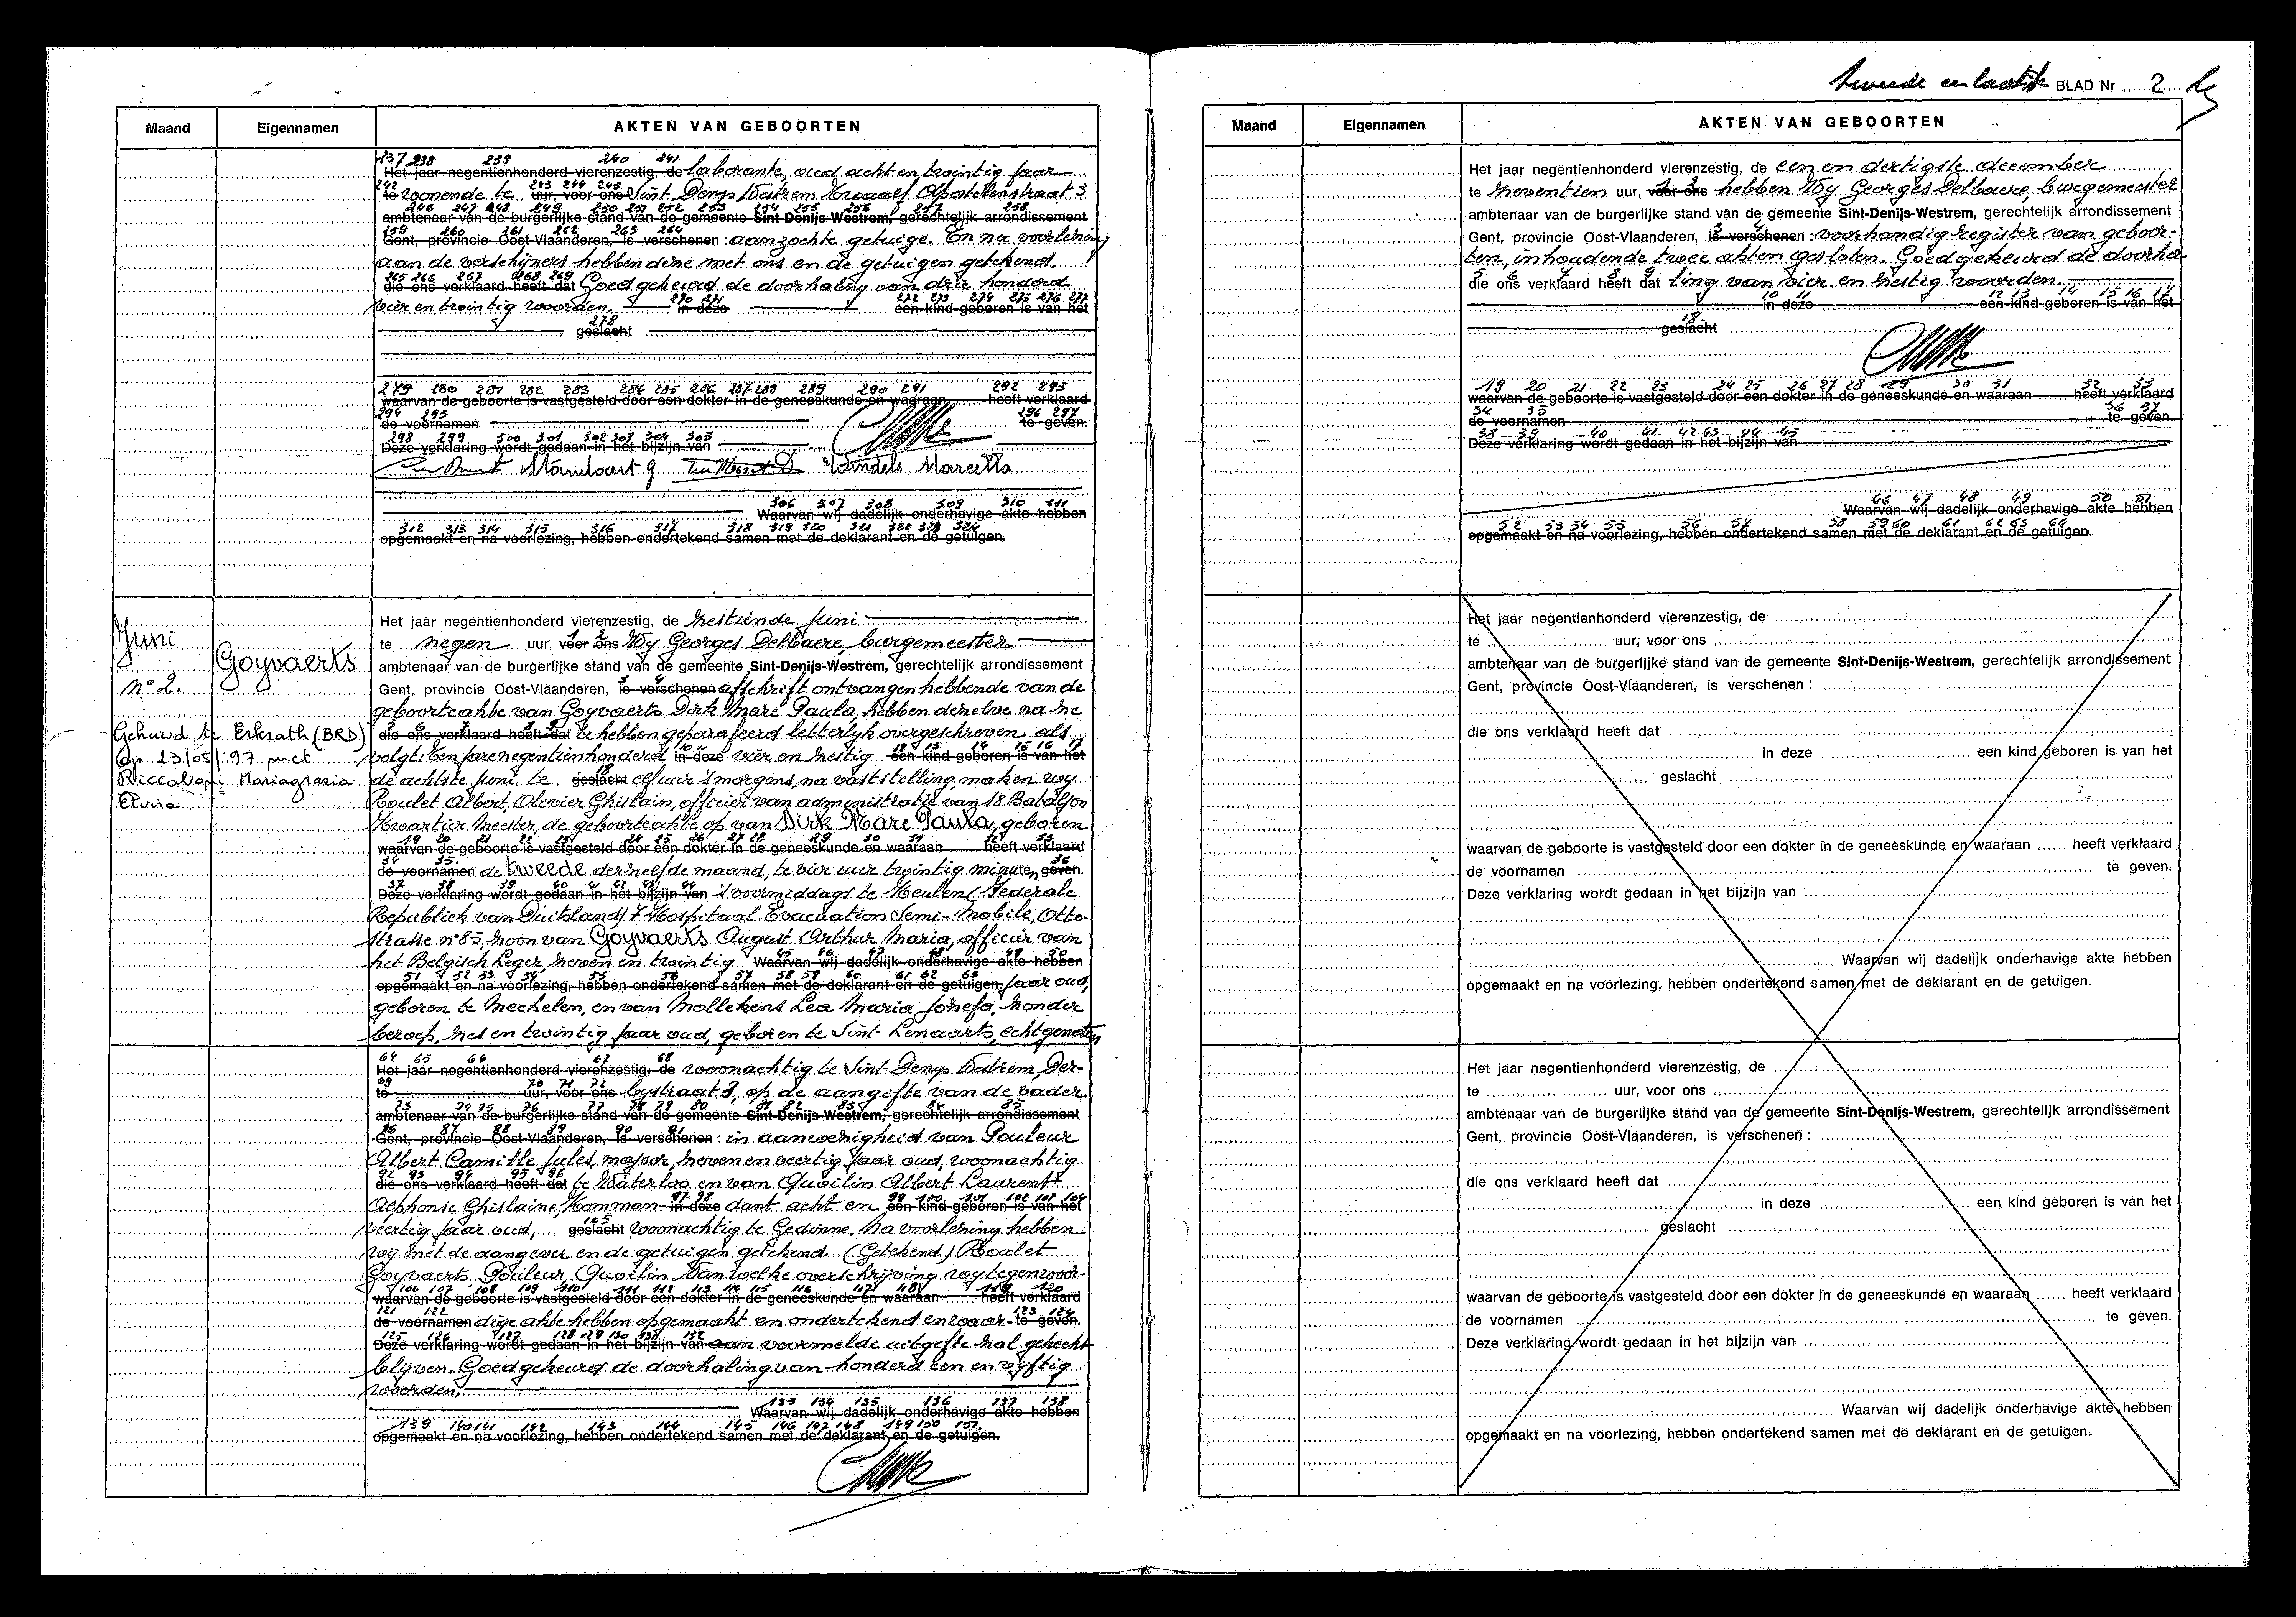 Maand Eigennamen AKTEN VAN GEBOORTEN
237 238 239 240 241
Het jaar negentienhonderd vierenzestig, de laborante, oud acht en twintig jaar
242 243 244 245
te wonende te uur, voor ons Sint Denys Westrem Graaf Apostelenstraat 3
246 247 248 249 250 251 252 253 254 255 256 257 258
ambtenaar van de burgerlijke stand van de gemeente Sint-Denijs-Westrem, gerechtelijk arrondissement
259 260 261 262 263 264
Gent, provincie Oost-Vlaanderen, is verschenen : aanzochte getuige. En na voorlezing
aan de verschijners hebben deze met ons en de getuigen getekend.
265 266 267 268 269
die ons verklaard heeft dat Goedgekeurd de doorhaling van drie honderd
270 271 272 273 274 275 276 277
vier en twintig woorden. in deze een kind geboren is van het
278
geslacht
279 280 281 282 283 284 285 286 287 288 289 290 291 292 293
waarvan de geboorte is vastgesteld door een dokter in de geneeskunde en waaraan heeft verklaard
294 295 296 297
de voornamen te geven.
298 299 300 301 302 303 304 305
Deze verklaring wordt gedaan in het bijzijn van
Windels Marcella
306 307 308 309 310 311
Waarvan wij dadelijk onderhavige akte hebben
312 313 314 315 316 317 318 319 320 321 322 323 324
opgemaakt en na voorlezing, hebben ondertekend samen met de deklarant en de getuigen.
Juni
n° 2.
Goyvaerts
Gehuwd te Erkrath (BRD)
op 23/05/97 met
Mariagrazia
Elvira
Het jaar negentienhonderd vierenzestig, de zestiende juni
1 2
te negen uur, voor ons Wy Georges Delbaere, burgemeester
ambtenaar van de burgerlijke stand van de gemeente Sint-Denijs-Westrem, gerechtelijk arrondissement
3 4
Gent, provincie Oost-Vlaanderen, is verschenen afschrift ontvangen hebbende van de
geboorteakte van Goyvaerts Dirk Marc Paula, hebben dezelve na ze
5 6 7 8 9
die ons verklaard heeft dat te hebben geparafeerd letterlyk overgeschreven als
10 11 12 13 14 15 16 17
volgt: Ten jare negentienhonderd in deze vier en zestig een kind geboren is van het
18
de achtste juni te geslacht elf uur 's morgens, na vaststelling, maken wy
Roulet Albert Olivier Ghislain, officier van administratie van 18 Bataljon
Kwartier Meester, de geboorteakte op van Dirk Marc Paula, geboren
19 20 21 22 23 24 25 26 27 28 29 30 31 32 33
waarvan de geboorte is vastgesteld door een dokter in de geneeskunde en waaraan heeft verklaard
34 35 36
de voornamen de tweede derzelfde maand, te vier uur twintig minuten, geven.
37 38 39 40 41 42 43 44
Deze verklaring wordt gedaan in het bijzijn van 's voormiddags te Keulen (Federale
Republiek van Duitsland) 7 Hospitaal Evacuation Semi-Mobile, Otto-
strasse n° 85, zoon van Goyvaerts August Arthur Maria, officier van
45 46 47 48 49 50
het Belgisch Leger, zeven en twintig Waarvan wij dadelijk onderhavige akte hebben
51 52 53 54 55 56 57 58 59 60 61 62 63
opgemaakt en na voorlezing, hebben ondertekend samen met de deklarant en de getuigen. jaar oud,
geboren te Mechelen, en van Mollekens Lea Maria Jozefa, zonder
beroep, zes en twintig jaar oud, geboren te Sint Lenaarts, echtgenoten
64 65 66 67 68
Het jaar negentienhonderd vierenzestig, de woonachtig te Sint Denys Westrem, Der-
69 70 71 72
te uur, voor ons bystraat 3, op de aangifte van de vader
73 74 75 76 77 78 79 80 81 82 83 84 85
ambtenaar van de burgerlijke stand van de gemeente Sint-Denijs-Westrem, gerechtelijk arrondissement
86 87 88 89 90 91
Gent, provincie Oost-Vlaanderen, is verschenen : in aanwezigheid van Pouleur
Albert Camille Jules, majoor, zeven en veertig jaar oud, woonachtig
92 93 94 95 96
die ons verklaard heeft dat te Waterloo en van Quoilin Albert Laurent
97 98 99 100 101 102 103 104
Alphonse Ghislaine, Komman- in deze dant acht en een kind geboren is van het
105
veertig jaar oud, geslacht woonachtig te Gedinne. Na voorlezing hebben
wy met de aangever en de getuigen getekend. (Getekend) Roulet
Goyvaerts Pouleur Quoilin. Van welke overschrijving wy tegenwoor-
106 107 108 109 110 111 112 113 114 115 116 117 118 119 120
waarvan de geboorte is vastgesteld door een dokter in de geneeskunde en waaraan heeft verklaard
121 122 123 124
de voornamen dige akte hebben opgemaakt en ondertekend en waar- te geven.
125 126 127 128 129 130 131 132
Deze verklaring wordt gedaan in het bijzijn van aan voormelde uitgifte zal gehecht
blijven. Goedgekeurd de doorhaling van honderd een en vyftig
woorden.
133 134 135 136 137 138
Waarvan wij dadelijk onderhavige akte hebben
139 140 141 142 143 144 145 146 147 148 149 150 151
opgemaakt en na voorlezing, hebben ondertekend samen met de deklarant en de getuigen.
tweede en laatste BLAD Nr 2
Maand Eigennamen AKTEN VAN GEBOORTEN
Het jaar negentienhonderd vierenzestig, de een en dertigste december
1 2
te zeventien uur, voor ons hebben Wy Georges Delbaere, burgemeester
ambtenaar van de burgerlijke stand van de gemeente Sint-Denijs-Westrem, gerechtelijk arrondissement
3 4
Gent, provincie Oost-Vlaanderen, is verschenen : voorhandig register van geboor-
ten, inhoudende twee akten gesloten. Goedgekeurd de doorha-
5 6 7 8 9
die ons verklaard heeft dat ling van vier en zestig woorden.
10 11 12 13 14 15 16 17
in deze een kind geboren is van het
18
geslacht
19 20 21 22 23 24 25 26 27 28 29 30 31 32 33
waarvan de geboorte is vastgesteld door een dokter in de geneeskunde en waaraan heeft verklaard
34 35 36 37
de voornamen te geven.
38 39 40 41 42 43 44 45
Deze verklaring wordt gedaan in het bijzijn van
46 47 48 49 50 51
Waarvan wij dadelijk onderhavige akte hebben
52 53 54 55 56 57 58 59 60 61 62 63 64
opgemaakt en na voorlezing, hebben ondertekend samen met de deklarant en de getuigen.
Het jaar negentienhonderd vierenzestig, de
te uur, voor ons
ambtenaar van de burgerlijke stand van de gemeente Sint-Denijs-Westrem, gerechtelijk arrondissement
Gent, provincie Oost-Vlaanderen, is verschenen :
die ons verklaard heeft dat
in deze een kind geboren is van het
geslacht
waarvan de geboorte is vastgesteld door een dokter in de geneeskunde en waaraan heeft verklaard
de voornamen te geven.
Deze verklaring wordt gedaan in het bijzijn van
Waarvan wij dadelijk onderhavige akte hebben
opgemaakt en na voorlezing, hebben ondertekend samen met de deklarant en de getuigen.
Het jaar negentienhonderd vierenzestig, de
te uur, voor ons
ambtenaar van de burgerlijke stand van de gemeente Sint-Denijs-Westrem, gerechtelijk arrondissement
Gent, provincie Oost-Vlaanderen, is verschenen :
die ons verklaard heeft dat
in deze een kind geboren is van het
geslacht
waarvan de geboorte is vastgesteld door een dokter in de geneeskunde en waaraan heeft verklaard
de voornamen te geven.
Deze verklaring wordt gedaan in het bijzijn van
Waarvan wij dadelijk onderhavige akte hebben
opgemaakt en na voorlezing, hebben ondertekend samen met de deklarant en de getuigen.